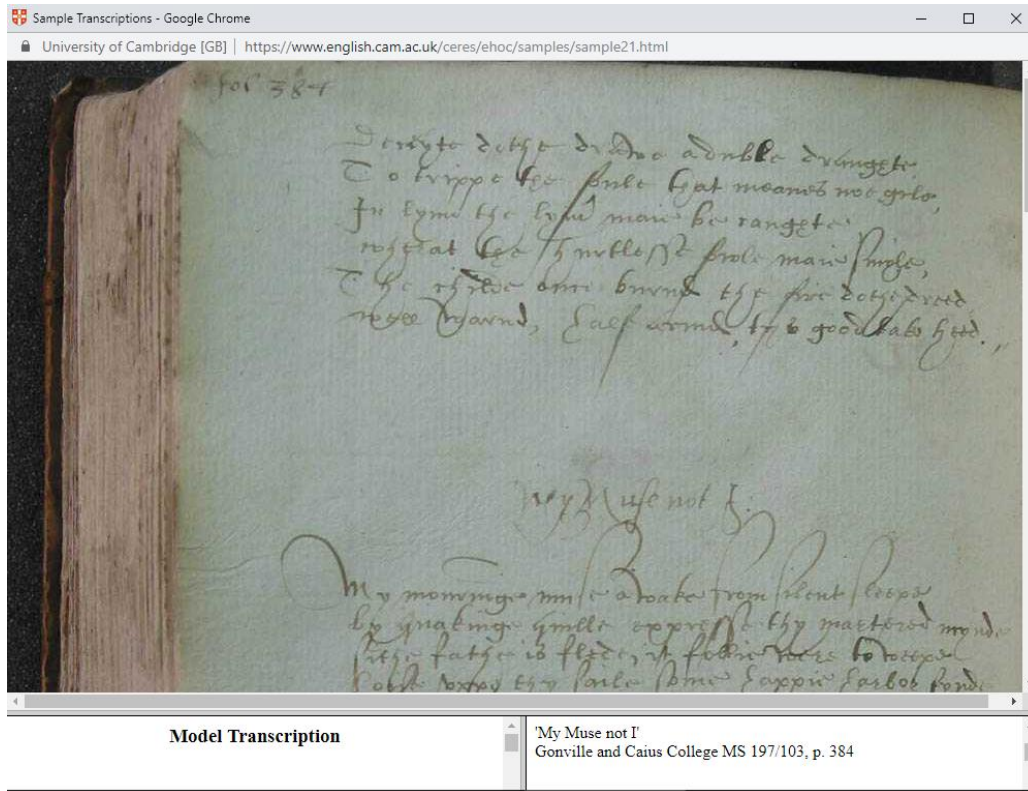 Sample Transcriptions - Google Chrome
University of Cambridge [GB] | https://www.english.cam.ac.uk/ceres/ehoc/samples/sample21.html
fol 384
Deceyte dothe drawe a duble draughte
To trippe the foule that meanes noe gyle,
In lyme the lym maie be raughte
whear at the hurtlesse foole maie smyle,
The childe once burnd the fire dothe dreed
well warnd, half armd, good take heed.
My Muse not I.
My mourninge muse awake from silent sleepe
by quakinge quille expresse thy martered mynde
sithe faithe is fledd, it follie weare to weepe
vppo thy saile some happie harbor fynde
Model Transcription
'My Muse not I'
Gonville and Caius College MS 197/103, p. 384